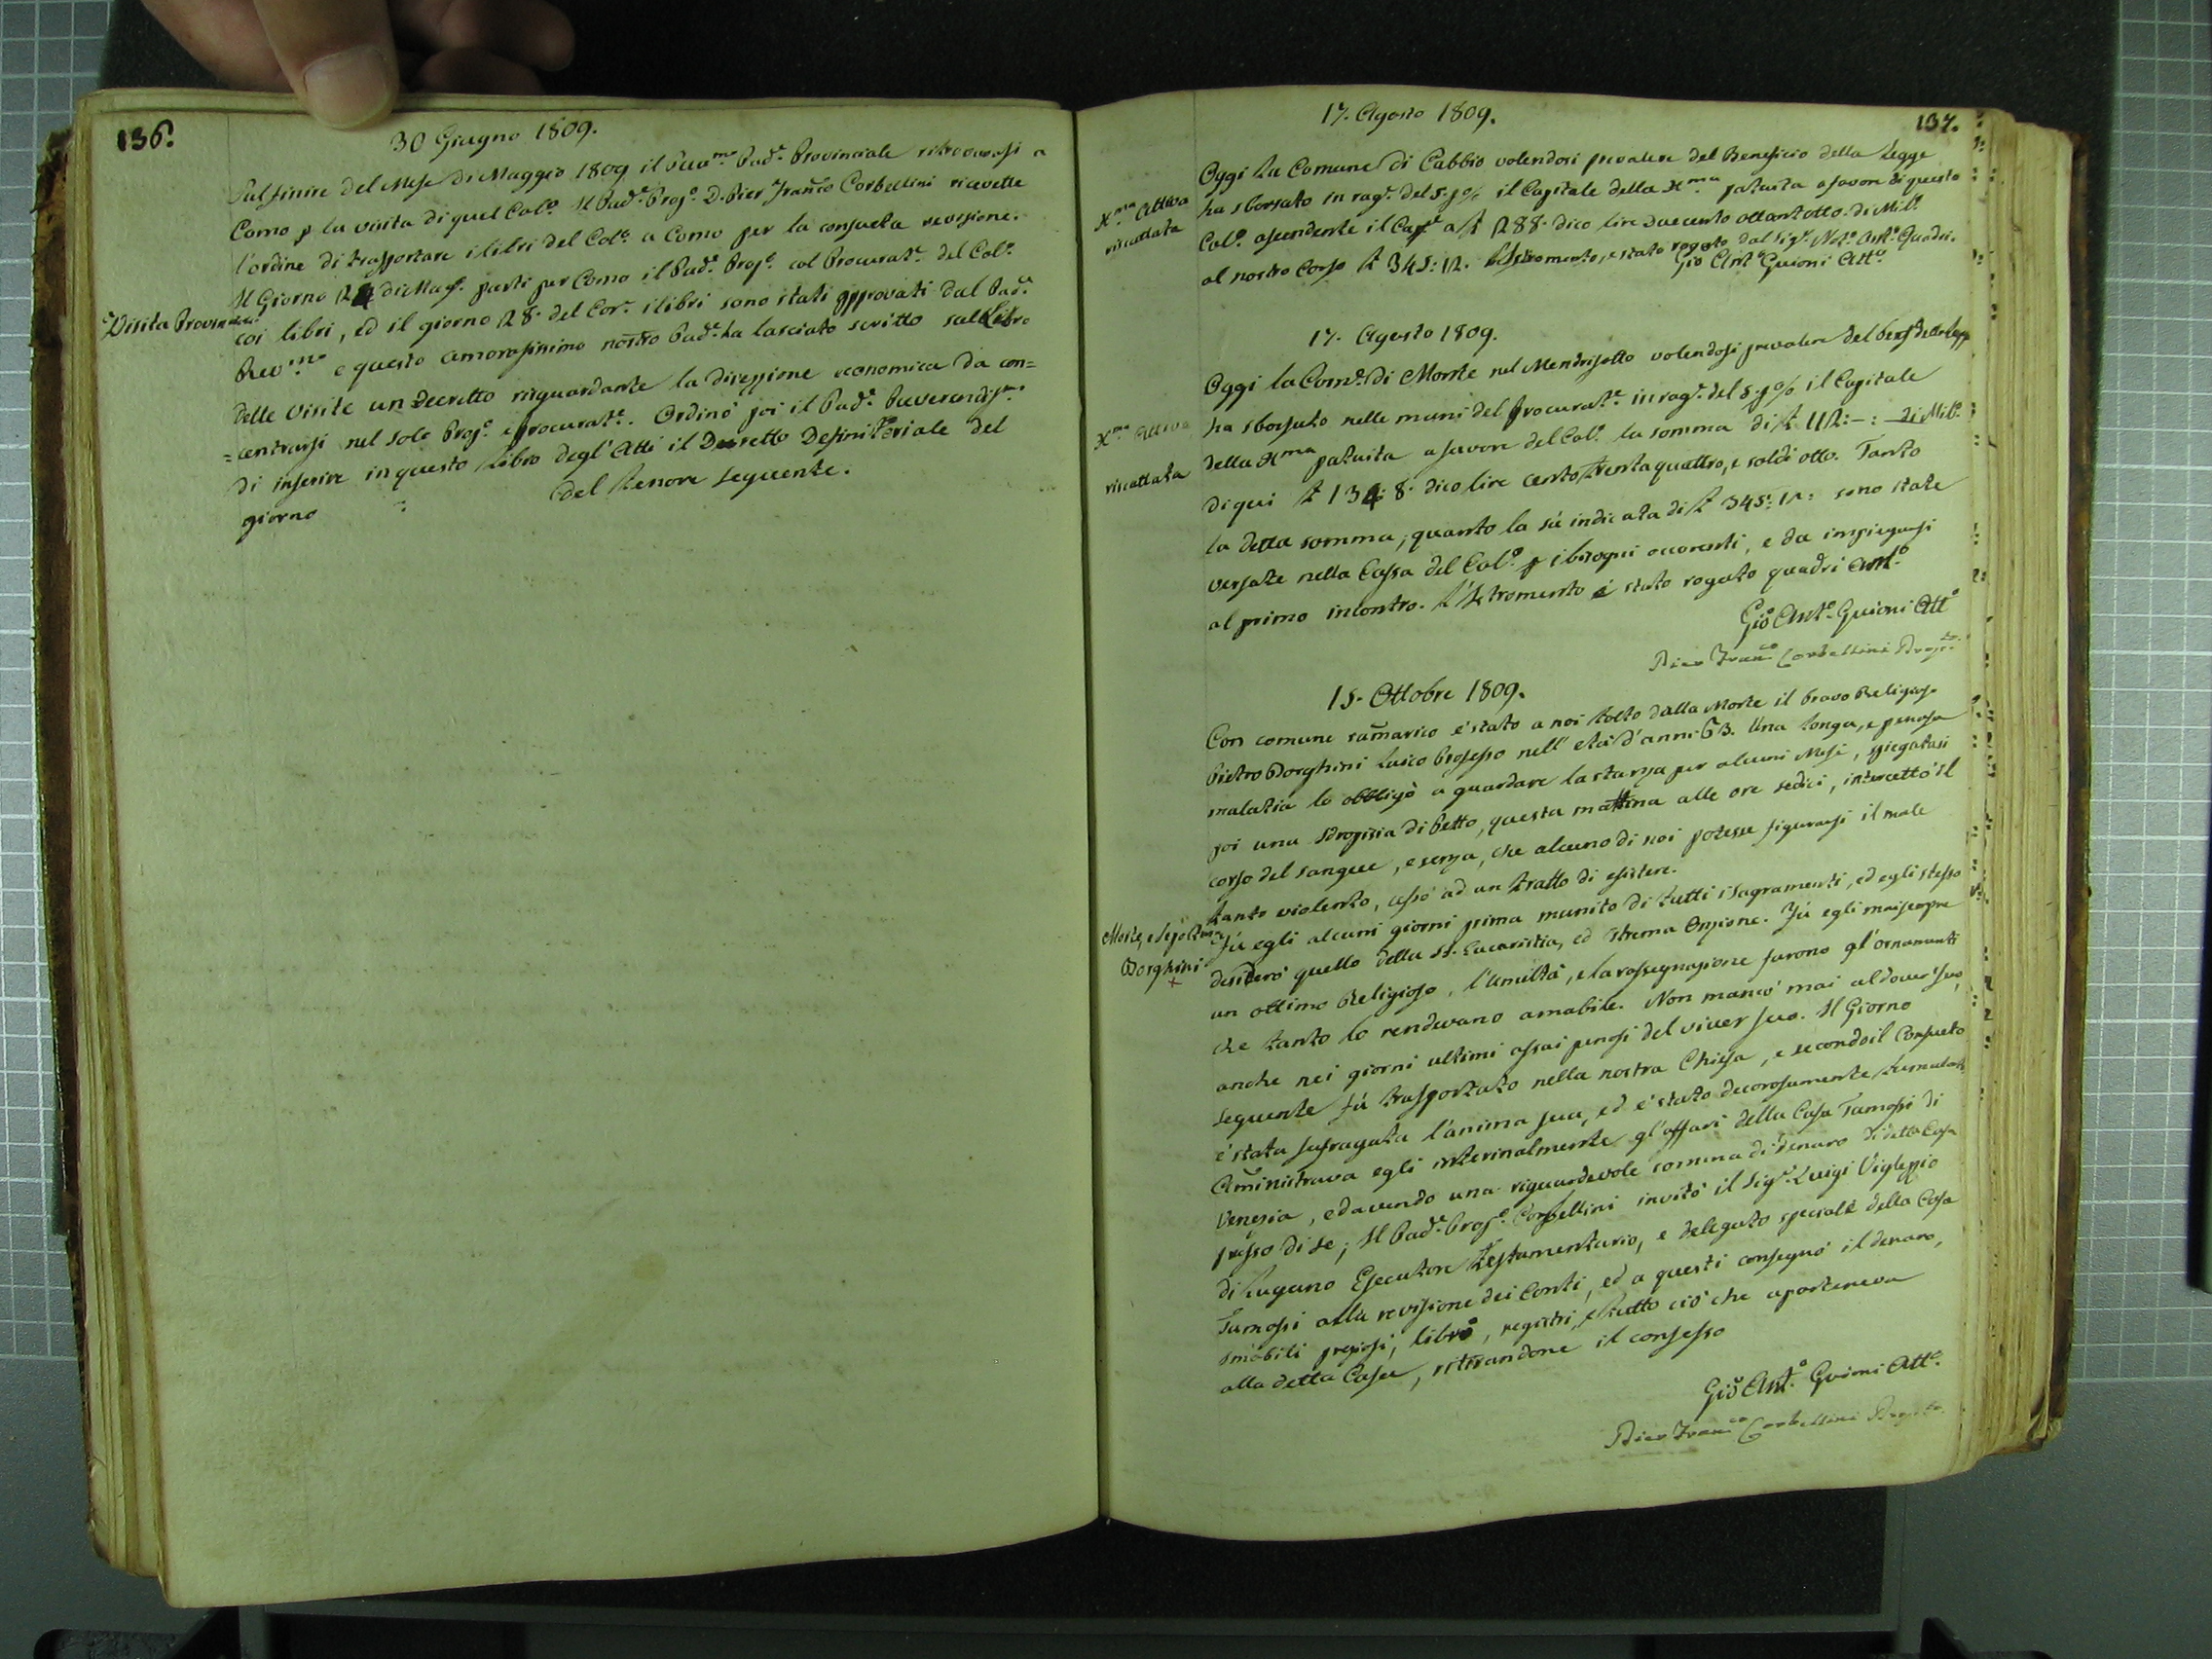 136.
30 Giugno 1809.
Sul finire del Mese di Maggio 1809 il Rev.mo Pad.e Provinciale ritrovavasi a
Como p la visita di quel Col.o Il Pad.e Prop.o D. Pier Franco Corbellini ricevette
l'ordine di trasportare i libri del Col.o a Como per la consueta revisione.
Il Giorno 24 di Mag.o partì per Como il Pad.e Prop.o col Procurat.e del Col.o
Visita Provinciale
coi libri, ed il giorno 28. del Cor.e i libri sono stati approvati dal Pad.e
Rev.mo e questo amorosissimo nostro Pad.e ha lasciato scritto sul Libro
delle Visite un Decretto risguardante la direzzione economica da con=
=centrarsi nel solo Prop.o e Procurat.e. Ordinò poi il Pad.e Reverendis.mo
di inserire in questo Libro degl' Atti il Decretto Definitoriale del
giorno : del tenore seguente.
137.
17. Agosto 1809.
Oggi la Comune di Cabbio volendosi prevalere del Beneficio della Legge
X.ma Attiva
riscattata
ha sborsato in rag.e del 5. p% il Capitale della X.ma patuita a favore di questo
Col.o ascendente il Cap.e a £ 288. dico lire duecento ottantotto. di Mil.o
al nostro Corso £ 345: 12. L'Istromento, e stato rogato dal Sig.r Not.o Ant.o Quadri.
Gio Ant.o Guioni Att.o
17. Agosto 1809.
Oggi la Com.e di Monte nel Mendrisotto volendosi prevalere del benef.o della Legge
X.ma Attiva
riscattata
ha sborsato nelle mani del Procurat.e in rag.e del 5. p% il Capitale
della X.ma patuita a favore del Col.o la somma di £ 112:-: di Mil.o
di qui £ 134: 8. dico lire cento trentaquattro, e soldi otto. Tanto
la detta somma, quanto la sù indicata di £ 345: 12: sono state
versate nella Cassa del Col.o p i bisogni occorenti, e da impiegarsi
al primo incontro. L'Istromento é stato rogato quadri Ant.o
Gio Ant.o Guioni Att.o
Pier Fran.co Corbellini Prop.to
15. Ottobre 1809.
Con comune ramarico é stato a noi tolto dalla Morte il bravo Religioso
Pietro Borghini Laico Professo nell' età d'anni 63. Una longa, e penosa
malatia lo obbligò a guardare la stanza per alcuni Mesi, spiegatasi
poi una Idropisia di Petto, questa mattina alle ore sedici, intercettò il
corso del sangue, e senza, che alcuno di noi potesse figurarsi il male
tanto violento, cessò ad un tratto di esistere.
Morte, e Sepoltura
Borghini
+
Fù egli alcuni giorni prima munito di tutti i Sagramenti, ed egli stesso
desiderò quello della SS. Eucaristia, ed Strema Onzione. Fù egli mai sempre
un ottimo Religioso, l'Umiltà, e la rassegnazione furono gl'ornamenti
che tanto lo rendevano amabile. Non mancò mai al dover suo,
anche nei giorni ultimi assai penosi del viver suo. Il Giorno
seguente fù trasportato nella nostra Chiesa, e secondo il Consueto
é stata sufragata l'anima sua, ed é stato decorosamente tumulato.
Aministrava egli interinalmente gl'affari della Casa Tamossi di
Venezia, ed avendo una riguardevole somma di denaro di detta Casa
presso di se; Il Pad.e Prop.o Corbellini invitò il Sig.r Luigi Viglezzio
di Lugano Esecutore Testamentario, e delegato speciale della Casa
Tamossi alla revisione dei Conti, ed a questi consegnò il denaro,
smobili preziosi, libri, registri, e tutto ciò che aparteneva
alla detta Casa, ritirandone il confesso
Gio Ant.o Guioni Att.o
Pier Fran.co Corbellini Prop.to